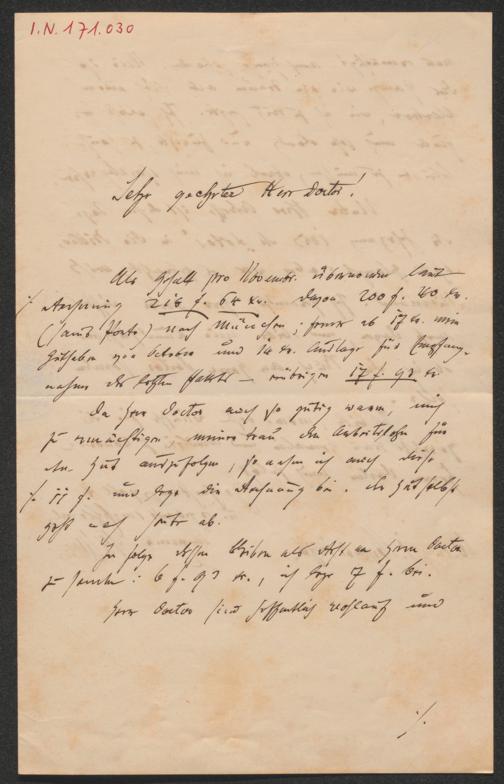 I.N. 171.030
Sehr geehrter Herr Doctor!
Als Gehalt pro Novembr. übernommen laut
Rechnung 218 f. 64 kr. davon 200 f. 40 kr.
(samt Porto) nach München; ferner ab 17 kr. mein
Guthaben von October und 14 kr. Auslage für Empfang-
nahme des letzten – erübrigen 17 f. 93 kr.
Da Herr Doctor auch so gütig waren, mich
zu ermächtigen meiner Frau den Arbeitslohn für
Hut auszufolgen, so nahm ich auch diese
11 f. und lege die Rechnung bei. Der Hut selbst
geht noch heute ab.
In folge dessen bleiben als Rest an Herrn Doctor
zu senden: 6 f. 93 kr., ich lege 7 f. bei.
Herr Doctor sind hoffentlich wohlauf und
./.